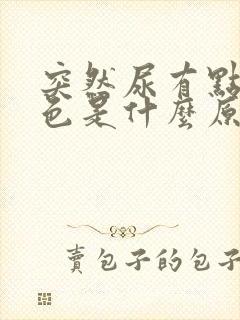 突然尿有點
色是什麼原
賣包子的包子